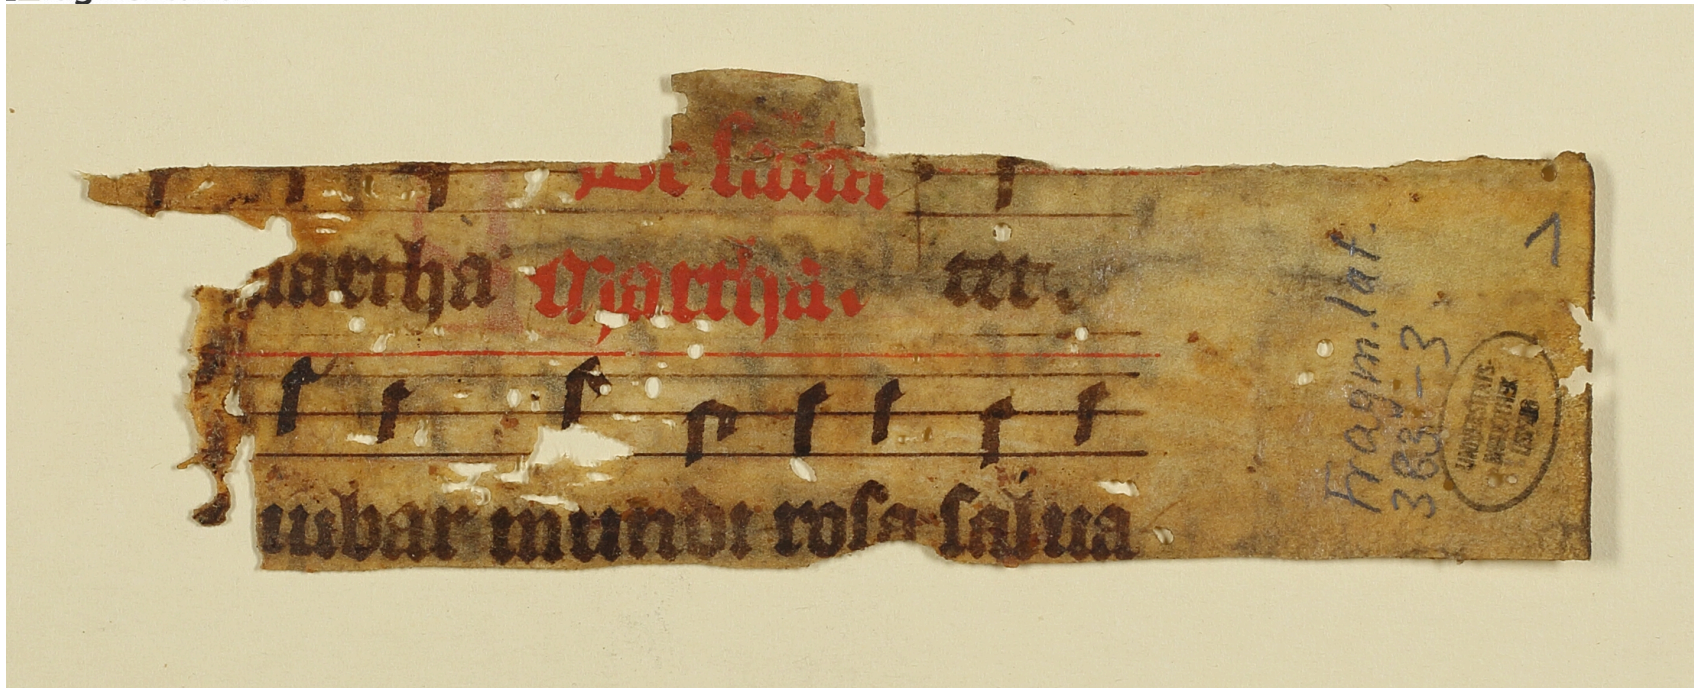 De sancta
martha Martha. tet.
iubar mundi rosa salua
Fragm. lat.
383-3
1
UNIVERSITÄTS-
BIBLIOTHEK
LEIPZIG